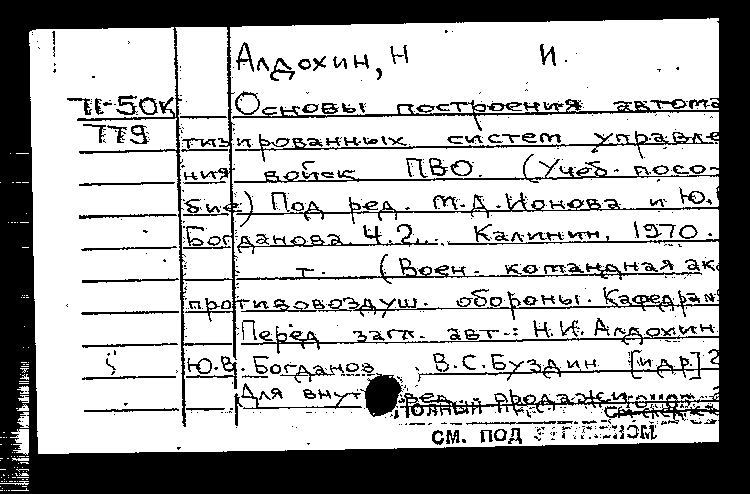 Алдохин, Н И.
П-50К Основы построения автома
779 тизированных систем управле
ния войск ПВО. (Учеб. посо-
бие) Под ред. М.Д.Ионова и Ю.
Богданова. Ч.2... Калинин, 1970.
т. (Воен. командная ак
противовоздуш. обороны. Кафедра
Перед загл. авт.: Н.И.Алдохин
Ю.В. Богданов, В.С.Буздин [и др] 2
Для внут
СМ. ПОД